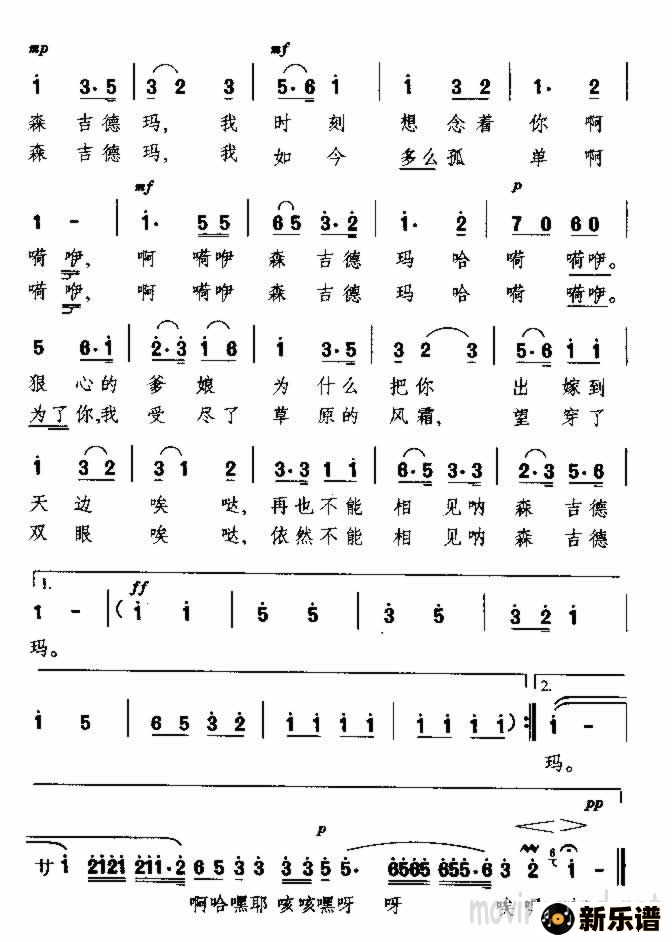 mp mf
i 3·5 | 3 2 3 | 5·6 i | i 3 2 | i· 2
森吉德玛，我时刻想念着你啊
森吉德玛，我如今多么孤单啊
mf p
1 - | i· 5 5 | 6 5 3·2 | i· 2 | 7 0 6 0
嗬咿，啊嗬咿森吉德玛哈嗬嗬咿。
嗬咿，啊嗬咿森吉德玛哈嗬嗬咿。
5 6·i | 2·3 i 6 | i 3·5 | 3 2 3 | 5·6 i i
狠心的爹娘为什么把你出嫁到
为了你，我受尽了草原的风霜，望穿了
i 3 2 | 3 1 2 | 3·3 1 i | 6·5 3·3 | 2·3 5·6
天边唉哒，再也不能相见呐森吉德
双眼唉哒，依然不能相见呐森吉德
1. ff
1 - | (i i | 5 5 | 3 5 | 3 2 i
玛。
i 5 | 6 5 3 2 | i i i i | i i i i) :| 2. i -
玛。
pp
p
サ i 2121 211·2 6 5 3 3 3 3 5 5· 6565 6565 655·6 3 2 6 i -
啊哈嘿耶咳咳嘿呀呀唉
新乐谱